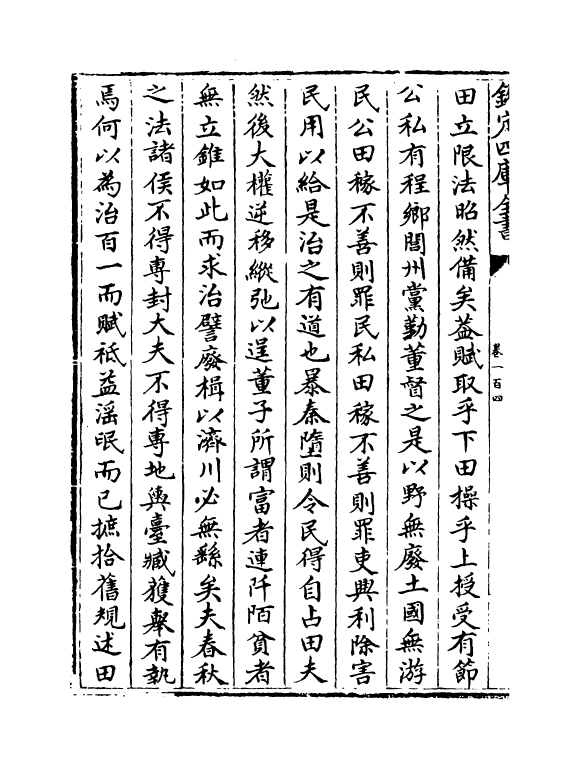 欽定四庫全書
卷一百四
田立限法昭然備矣葢賦取乎下田操乎上授受有節
公私有程鄉閭州黨勤董督之是以野無廢土國無游
民公田稼不善則罪民私田稼不善則罪吏興利除害
民用以給是治之有道也暴秦墮則令民得自占田夫
然後大權逆移縱弛以逞董子所謂富者連阡陌貧者
無立錐如此而求治譬廢楫以濟川必無繇矣夫春秋
之法諸侯不得專封大夫不得專地輿臺臧獲舉有執
焉何以為治百一而賦祗益滛㞱而已摭拾舊規述田